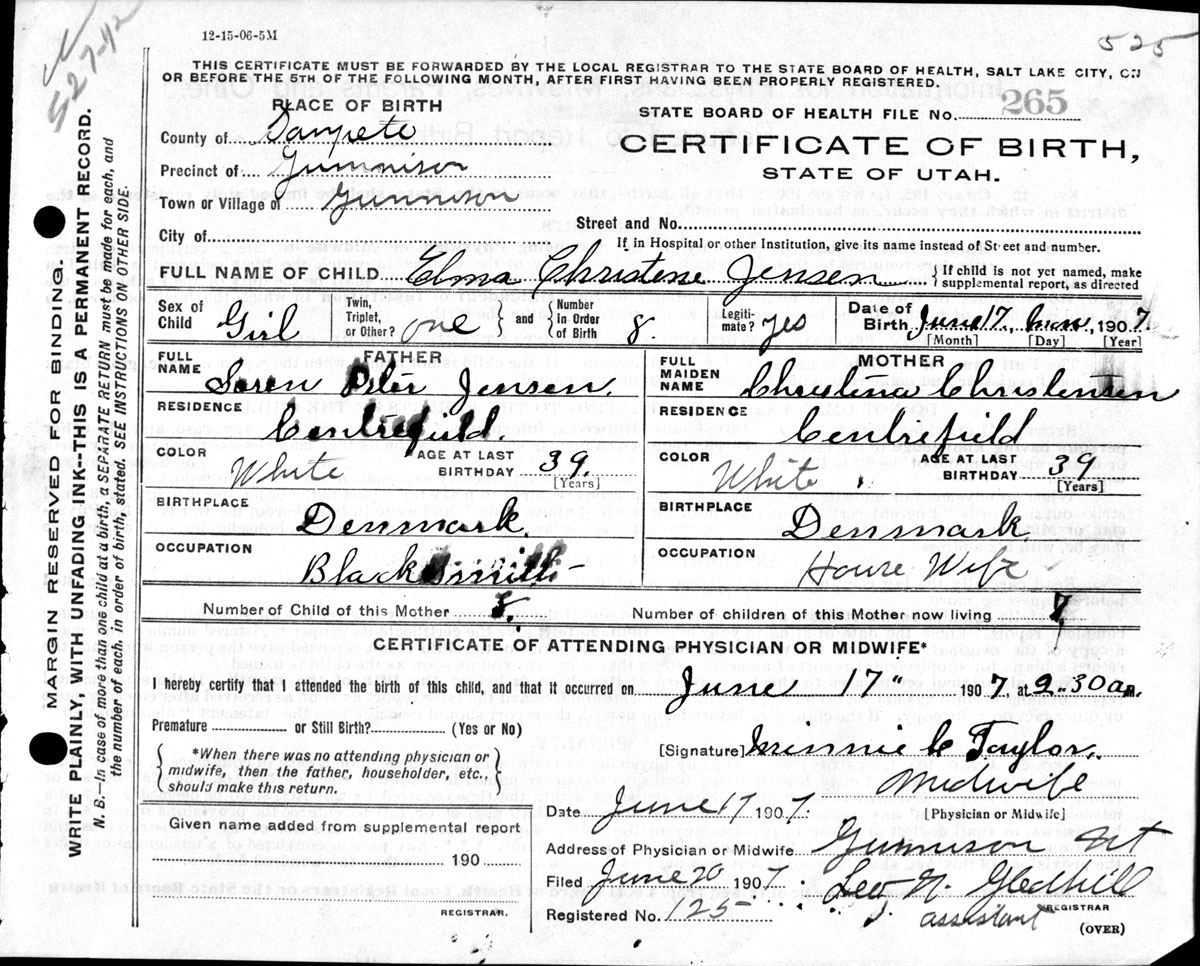 12-15-06-5M
525
527-42
THIS CERTIFICATE MUST BE FORWARDED BY THE LOCAL REGISTRAR TO THE STATE BOARD OF HEALTH, SALT LAKE CITY, ON
OR BEFORE THE 5TH OF THE FOLLOWING MONTH, AFTER FIRST HAVING BEEN PROPERLY REGISTERED.
PLACE OF BIRTH
County of Sanpete
Precinct of Gunnison
Town or Village of Gunnison
City of
STATE BOARD OF HEALTH FILE No. 265
CERTIFICATE OF BIRTH,
STATE OF UTAH.
Street and No.
If in Hospital or other Institution, give its name instead of Street and number.
FULL NAME OF CHILD Elma Christene Jensen { If child is not yet named, make supplemental report, as directed
Sex of Child Girl Twin, Triplet, or Other? one { and } Number In Order of Birth 8. Legiti-mate? yes Date of Birth June 17, 1907.
[Month] [Day] [Year]
FATHER
FULL NAME Soren Peter Jensen.
RESIDENCE Centrefield.
COLOR White AGE AT LAST BIRTHDAY 39. [Years]
BIRTHPLACE Denmark.
OCCUPATION Blacksmith
MOTHER
FULL MAIDEN NAME Christina Christensen
RESIDENCE Centrefield
COLOR White. AGE AT LAST BIRTHDAY 39 [Years]
BIRTHPLACE Denmark.
OCCUPATION House Wife
Number of Child of this Mother 8. Number of children of this Mother now living 7
CERTIFICATE OF ATTENDING PHYSICIAN OR MIDWIFE*
I hereby certify that I attended the birth of this child, and that it occurred on June 17" 1907, at 9.30 a.m.
Premature or Still Birth? (Yes or No)
{ *When there was no attending physician or
midwife, then the father, householder, etc.,
should make this return. }
[Signature] Minnie C Taylor.
Midwife
[Physician or Midwife]
Date June 17 1907.
Given name added from supplemental report
190
REGISTRAR.
Address of Physician or Midwife Gunnison Ut
Filed June 20 1907. Leo N. Gledhill
REGISTRAR
Registered No. 125 assistant
(OVER)
MARGIN RESERVED FOR BINDING.
WRITE PLAINLY, WITH UNFADING INK--THIS IS A PERMANENT RECORD.
N. B.--In case of more than one child at a birth, a SEPARATE RETURN must be made for each, and
the number of each, in order of birth, stated. SEE INSTRUCTIONS ON OTHER SIDE.